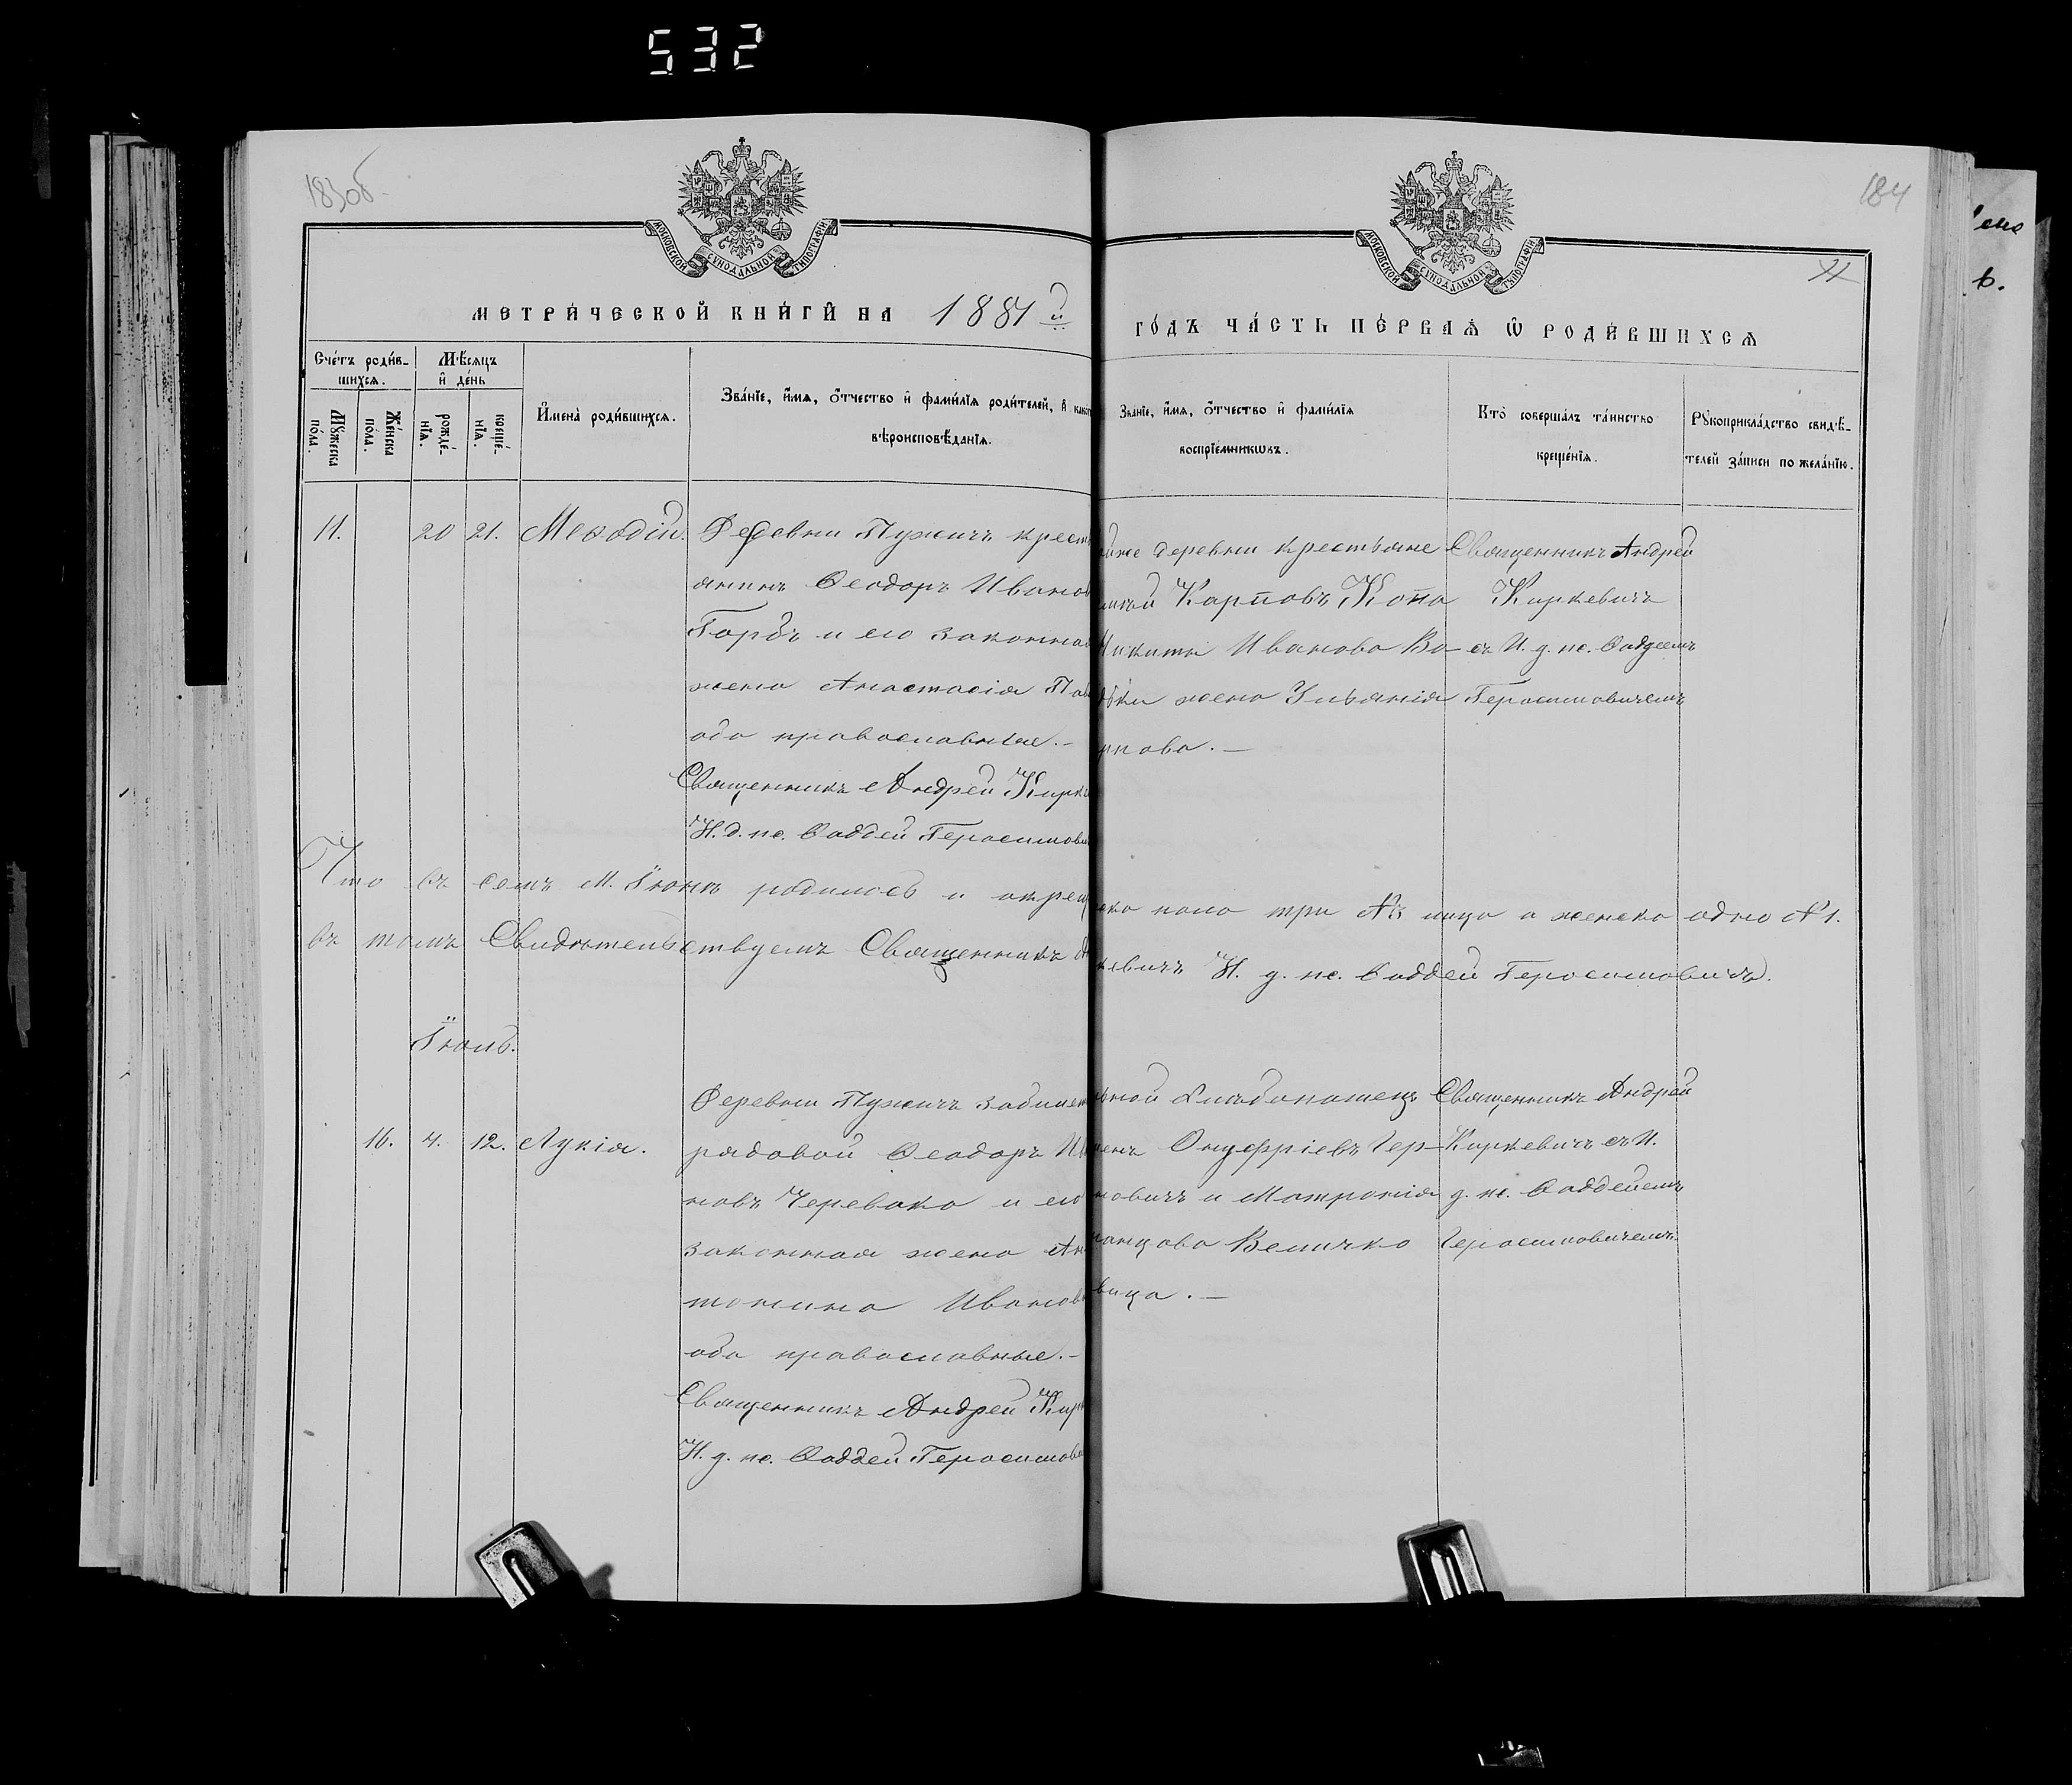 532
183об
184
МОСКОВСКОЙ СѴНОДАЛЬНОЙ ТИПОГРАФІИ
МОСКОВСКОЙ СѴНОДАЛЬНОЙ ТИПОГРАФІИ
МЕТРИ́ЧЕСКОЙ КНИ́ГИ НА 1881й
ГО́ДЪ ЧА́СТЬ ПЕ́РВАѦ Ѡ҆ РОДИ́ВШИХСѦ
Сче́тъ роди́в-
шихсѧ.
Мѣ́сѧцъ
и҆ де́нь
Мꙋ́жеска
по́ла.
Же́нска
по́ла.
рожде́-
нїѧ.
креще́-
нїѧ.
И҆мена̀ роди́вшихсѧ.
Зва́нїе, и҆́мѧ, ѻ҆́тчество и҆ фами́лїѧ роди́телей, и҆
вѣроисповѣ́данїѧ.
Зва́нїе, и҆́мѧ, ѻ҆́тчество и҆ фами́лїѧ
воспрїе́мникѡвъ.
Кто̀ соверша́лъ та́инство
креще́нїѧ.
Рꙋкоприкла́дство свидѣ́-
телей за́писи по жела́нїю.
11. 20 21. Меѳодій.
Деревни Пужичъ крест
янинъ Ѳеодоръ Иванов
Горбъ и его законная
жена Анастасія
оба православные.-
Священникъ Андрей Кирке
И. д. пс. Ѳаддей Герасимович
деревни крестьяне
Карповъ Копа
Никиты Иванова Во-
жена Ульянія
рпова.-
Священникъ Андрей
Киркевичъ
съ И. д. пс. Ѳаддеемъ
Герасимовичемъ
Что въ семъ М. Іюнѣ родилось и окрещ
ска пола три №3 лица а женска одно №1.
въ томъ Свидѣтельствуемъ Священникъ
кевичъ И. д. пс. Ѳаддей Герасимовичъ.
Іюль.
16. 4. 12. Лукія.
Деревни Пужичъ
рядовой Ѳеодоръ Ива
новъ Черевако и его
законная жена Ан
тонина Иванов
оба православные.-
Священникъ Андрей Кирк
И. д. пс. Ѳаддей Герасимови
Онуфріевъ Гер-
мовичъ и Матронія
Величко
вица.-
Священникъ Андрей
Киркевичъ съ И.
д. пс. Ѳаддеемъ
Герасимовичемъ.